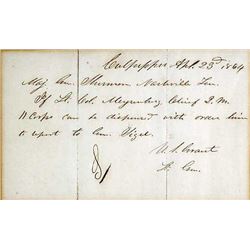 Culpepper Apl. 23d 1864
Maj. Gen. Sherman Nashville Ten.
If Lt. Col. Meysenburg Chief Q. M.
11 Corps can be dispensed with order him
to report to Gen. Sigel.
U. S. Grant
Lt. Gen.